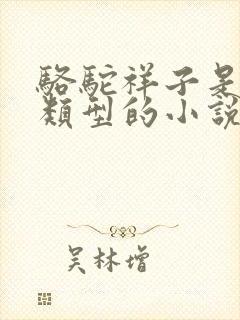 駱駝祥子是
類型的小說
吴林增